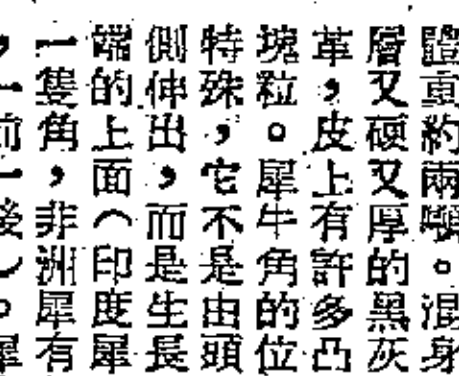 體重約兩噸。混身
層又硬又厚的黑灰
革，皮上有許多凸
塊粒。犀牛角的位
特殊，它不是由頭
側伸出，而是生長
端的上面（印度犀
一隻角，非洲犀有
，一前一後）。犀